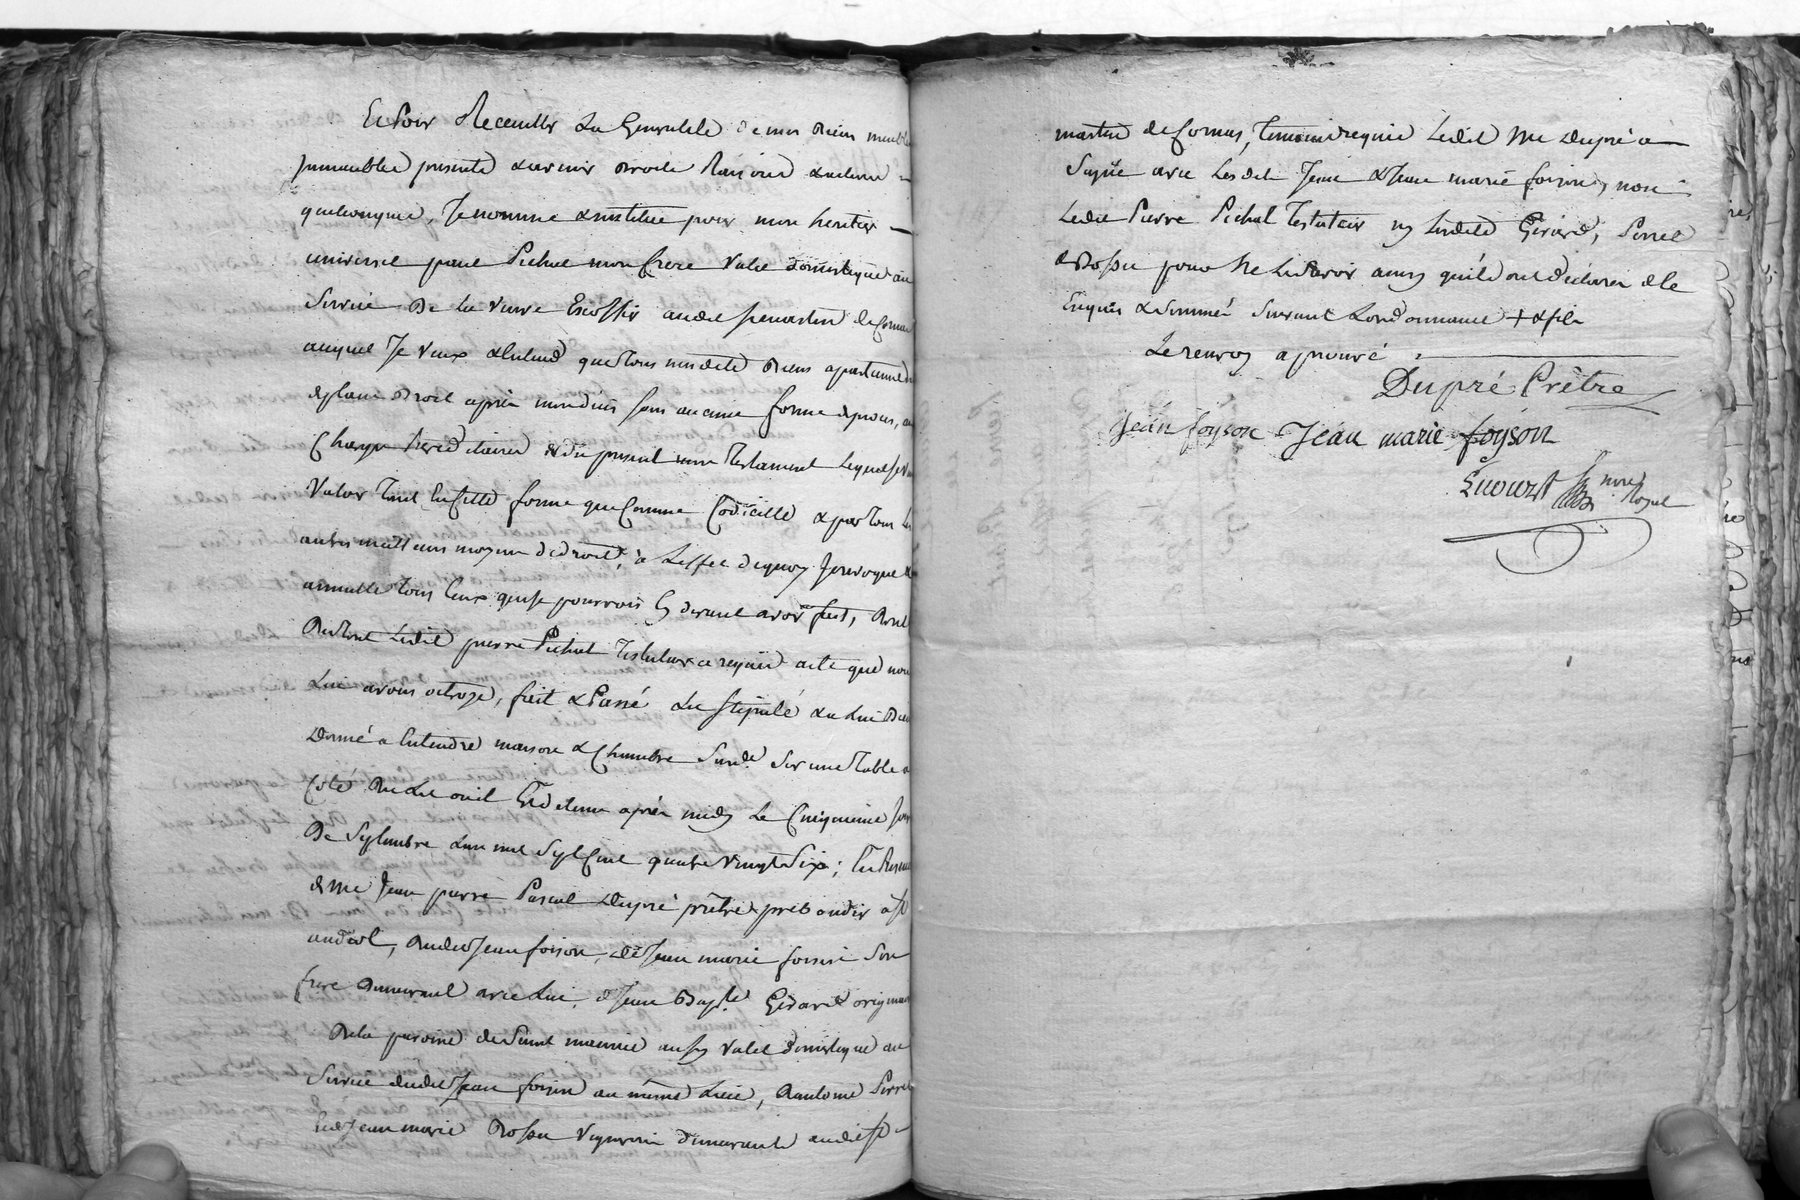 Et Pour Recueillir La Generalité de mes Biens meubles
Immeubles presents & avenir droits Raisons & actions
quelconques, Je nomme & institue pour mon heritier
universel paul Pichat mon frere Valet domestique au
Service De la Veuve Escoffier audit St martin de Cornas
auquel Je veux & entend que tous mesdits Biens apartiennent
de plain droit après mon deces sans aucune forme de proces, aux
Charges hereditaires & du present mon testament Lequel
Valoir tant En cette forme que Comme Codicille & par tous Les
autres meilleurs moyens de droit, à Leffet de quoy Je revoque &
annulle tous Ceux que je pourrois Cy devant avoir fait, dont
du tout Ledit pierre Pichat Testateur a requis acte que nous
Lui avons octroyé, fait & Passé Lu stipulé & a Lui Bien
Donné a Entendre maison & Chambre Susd. Sur une table a
Coté du Lit ou il Est detenu après midy Le Cinquieme Jour
De Septembre Lan mil Sept Cent quatre vingt Six; En Presence
de Me Jean pierre Pascal Dupré prêtre prebandier a St
andeol, dudit Jean foison, de Jean marie foison Son
frere demeurant avec Lui, de Jean Bapte. Girard originaire
De la paroisse de Saint maurice aussy Valet domestique au
Service dudit Jean foison au même Lieu, dantoine Perret
Et de Jean marie Bosse Vigneron demeurants audit St
martin de Cornas, temoins requis Ledit Me Dupré a
Signé avec Lesdits Jean & Jean marie foison, non
Ledit Pierre Pichat Testateur ny Lesdits Girard, Perret
& Bosse pour ne Le Savoir ainsy quils ont déclaré de ce
Enquis & Sommés Suivant Lordonnance + & fils
Le renvoy aprouvé .
Dupré Prêtre
jean foyson Jean marie foyson
nore Royal